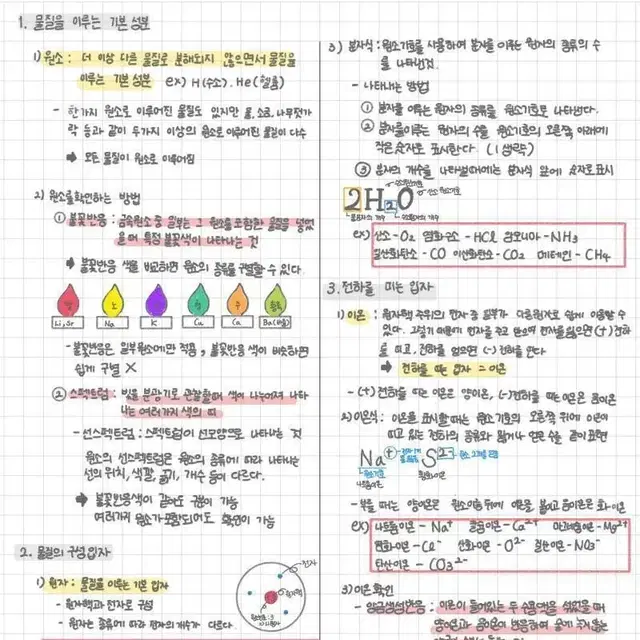 1. 물질을 이루는 기본 성분
1) 원소 : 더 이상 다른 물질로 분해되지 않으면서 물질을
이루는 기본 성분 ex) H(수소). He(헬륨)
- 한가지 원소로 이루어진 물질도 있지만 물, 소금, 나무젓가
락 등과 같이 두가지 이상의 원소로 이루어진 물질이 다수
➡ 모든 물질이 원소로 이루어짐
2) 원소를 확인하는 방법
① 불꽃반응 : 금속원소 중 일부는 그 원소를 포함한 물질을 넣었
을 때 특정 불꽃색이 나타나는 것
➡ 불꽃반응 색을 비교하면 원소의 종류를 구별할 수 있다.
빨 노 보 청 주 황록
Li,Sr Na K Cu Ca Ba(바륨)
- 불꽃반응은 일부원소에만 적용, 불꽃반응 색이 비슷하면
쉽게 구별 X
② 스펙트럼 : 빛을 분광기로 관찰할때 색이 나누어져 나타
나는 여러가지 색의 띠
- 선스펙트럼 : 스펙트럼이 선모양으로 나타나는 것
원소의 선스펙트럼은 원소의 종류에 따라 나타나는
선의 위치, 색깔, 굵기, 개수 등이 다르다.
➡ 불꽃반응색이 같아도 구별이 가능
여러가지 원소가 포함되어도 확인이 가능
2. 물질의 구성 입자
1) 원자 : 물질을 이루는 기본 입자
- 원자핵과 전자로 구성
- 원자는 종류에 따라 전자의 개수가 다르다.
전자
원자핵
3) 분자식 : 원소기호를 사용하여 분자를 이루는 원자의 종류와 수
를 나타낸것.
- 나타내는 방법
① 분자를 이루는 원자의 종류를 원소기호로 나타낸다.
② 분자를이루는 원자의 수를 원소기호의 오른쪽 아래에
작은 숫자로 표시한다. (1생략)
③ 분자의 개수를 나타낼때에는 분자식 앞에 숫자로 표시
2H2O
ex) 산소-O2 염화수소-HCl 암모니아-NH3
일산화탄소-CO 이산화탄소-CO2 메테인-CH4
3. 전하를 띠는 입자
1) 이온 : 원자핵 주위의 전자 중 일부가 다른원자로 쉽게 이동할 수
있다. 그렇기 때문에 전자를 주고 받으며 전자를잃으면 (+)전하
를 띠고, 전하를 얻으면 (-)전하를 띤다
➡ 전하를 띠는 입자 = 이온
- (+)전하를 띠는 이온은 양이온, (-)전하를 띠는 이온은 음이온
2) 이온식 : 이온을 표시할때는 원소기호의 오른쪽 위에 이온이
띠고 있는 전하의 종류와 잃거나 얻은 수를 같이 표현
Na+ S2-
나트륨이온 황화이온
- 부를 때는 양이온은 원소이름뒤에 이온을 붙이고 음이온은 화 이온
ex) 나트륨이온 - Na+ 칼슘이온 - Ca2+ 마그네슘이온 - Mg2+
염화이온 - Cl- 산화이온 - O2- 질산이온 - NO3-
탄산이온 - CO32-
3) 이온 확인
- 앙금생성반응 : 이온이 들어있는 두 수용액을 섞었을 때
양이온과 음이온이 반응하여 물에 녹지않는